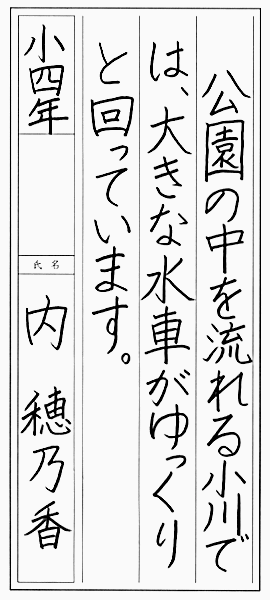 公園の中を流れる小川で
は、大きな水車がゆっくり
と回っています。
小四年
氏名
内 穂乃香